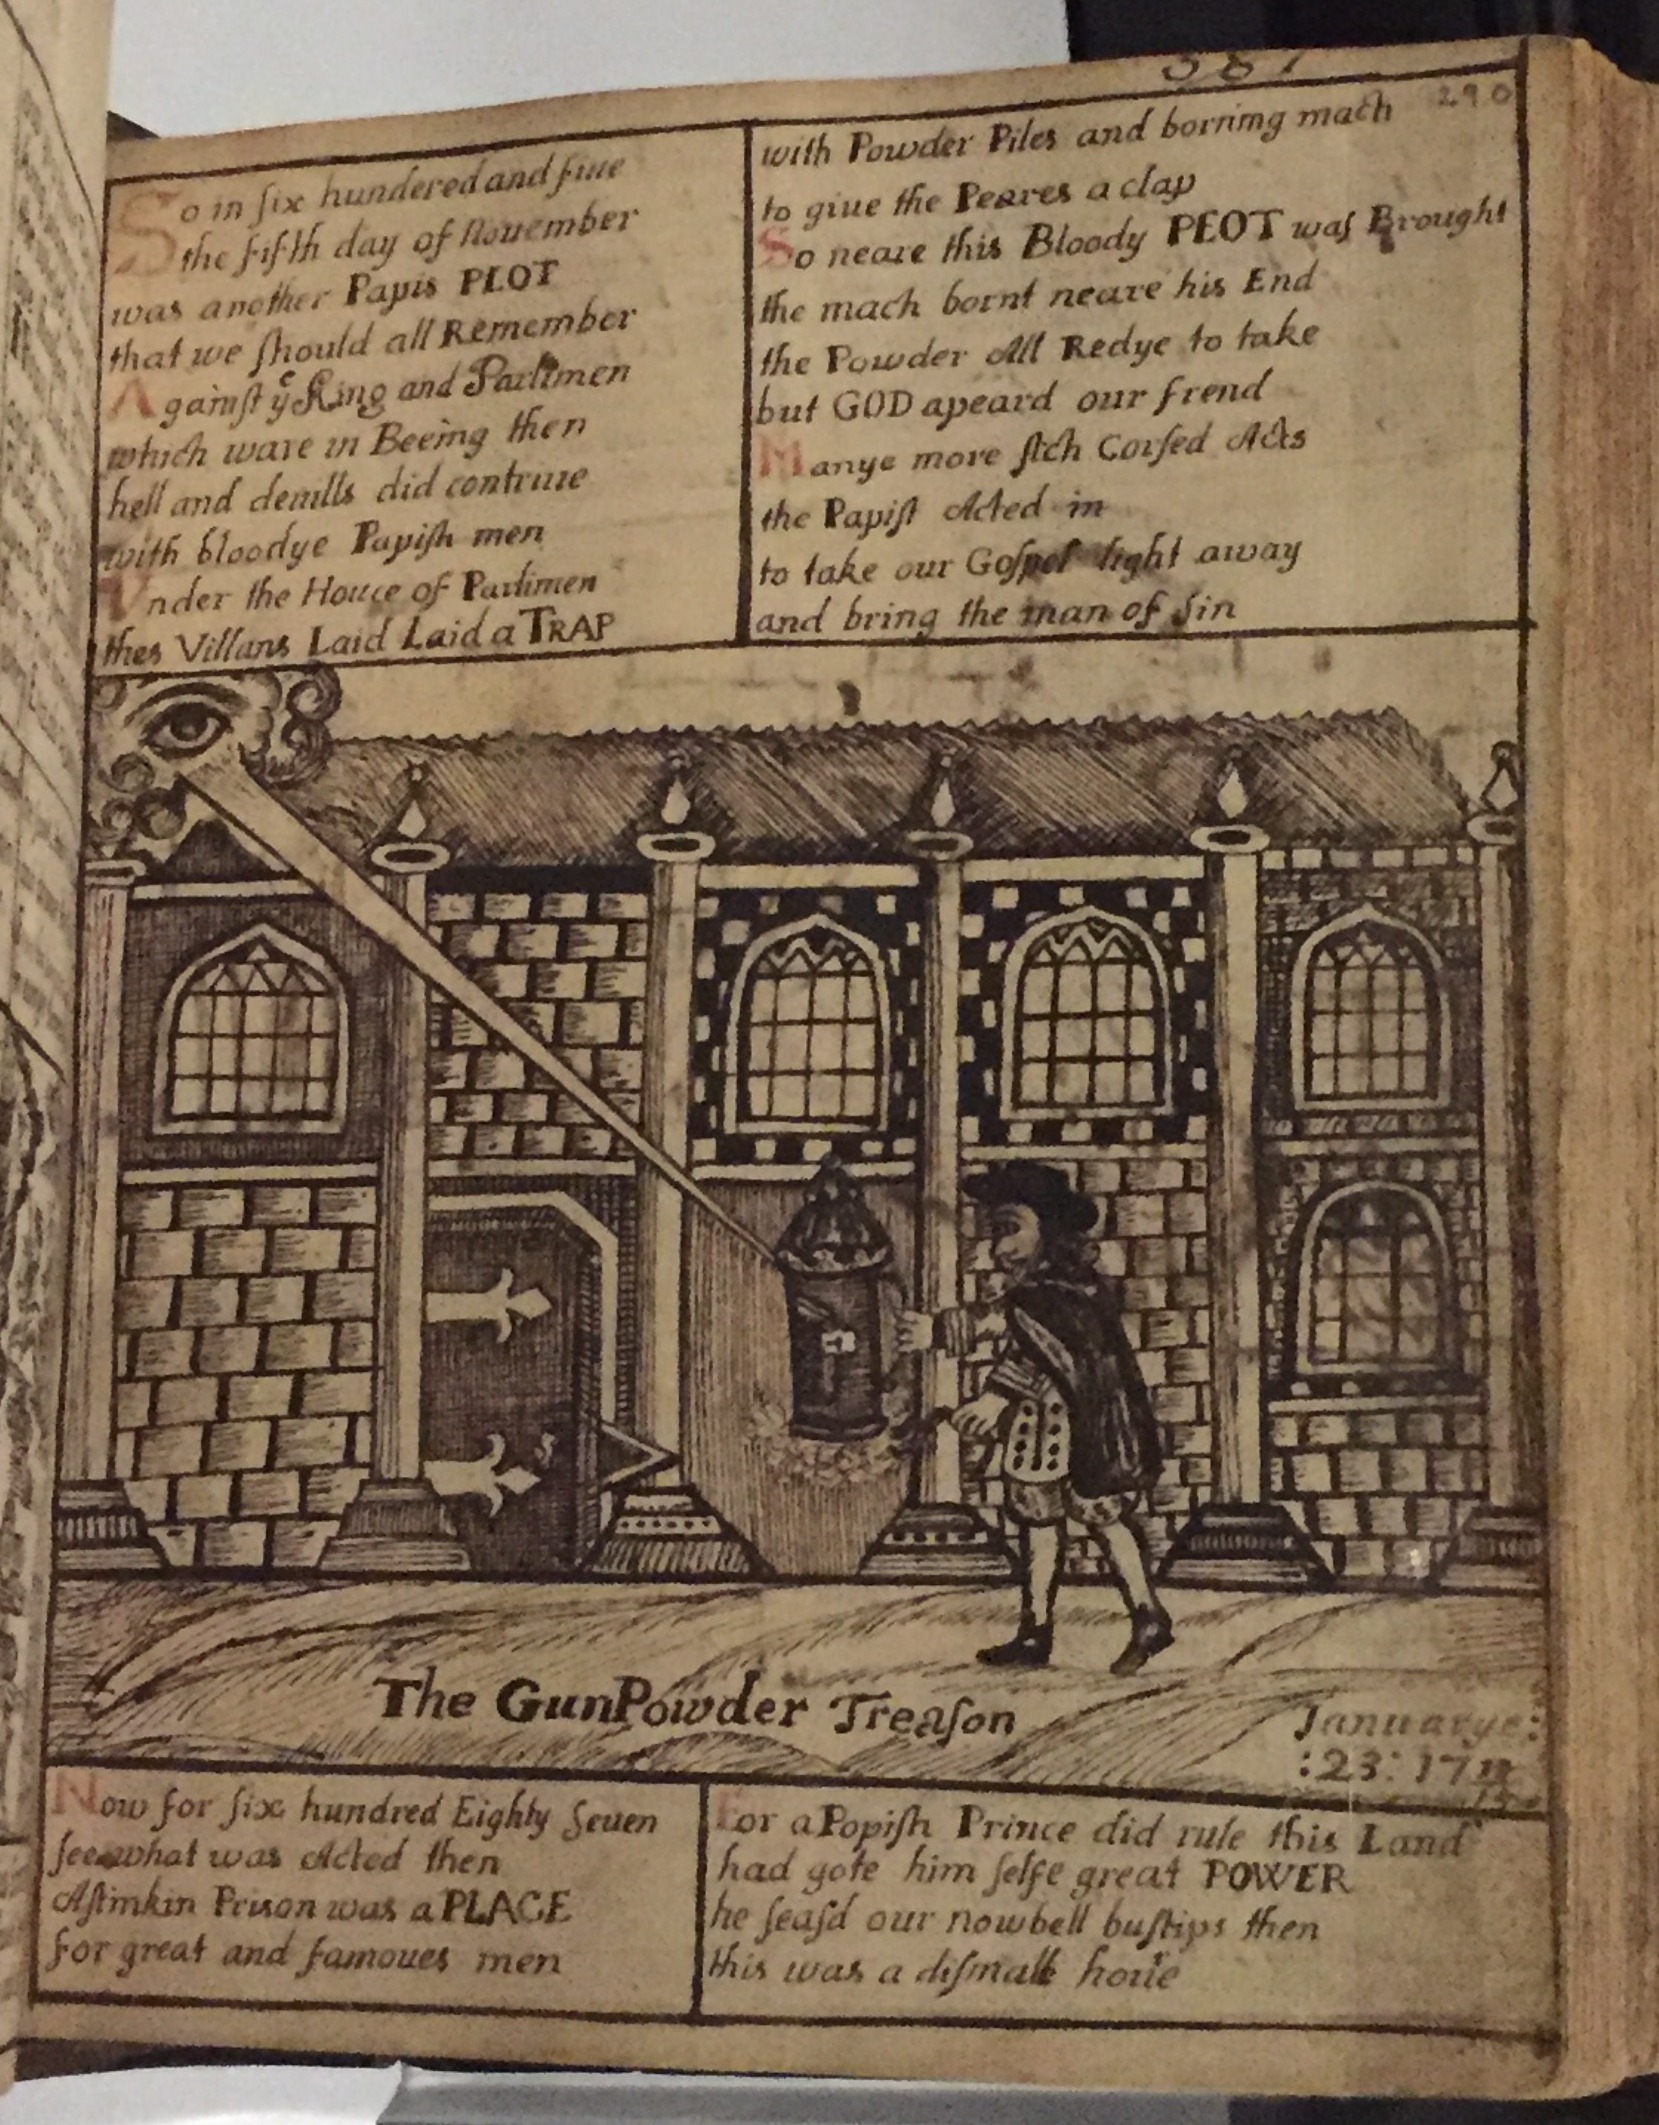 387
290
So in six hundered and fiue
the fifth day of Nouember
was another Papis PLOT
that we should all Remember
Against yᵉ King and Parlimen
which ware in Beeing then
hell and deuills did contriue
with bloodye Papish men
Vnder the Houce of Parlimen
thes Villans Laid Laid a TRAP
with Powder Piles and borning mach
to giue the Peares a clap
So neare this Bloody PLOT was Brought
the mach bornt neare his End
the Powder All Redye to take
but GOD apeard our frend
Manye more sich Corsed Acts
the Papist Acted in
to take our Gospel light away
and bring the man of sin
The GunPowder Treason
Januarye:
:23: 17
Now for six hundred Eighty Seuen
see what was Acted then
Astinkin Prison was a PLACE
for great and famoues men
For a Popish Prince did rule this Land
had gote him selfe great POWER
he seasd our nowbell bustips then
this was a dismall houre